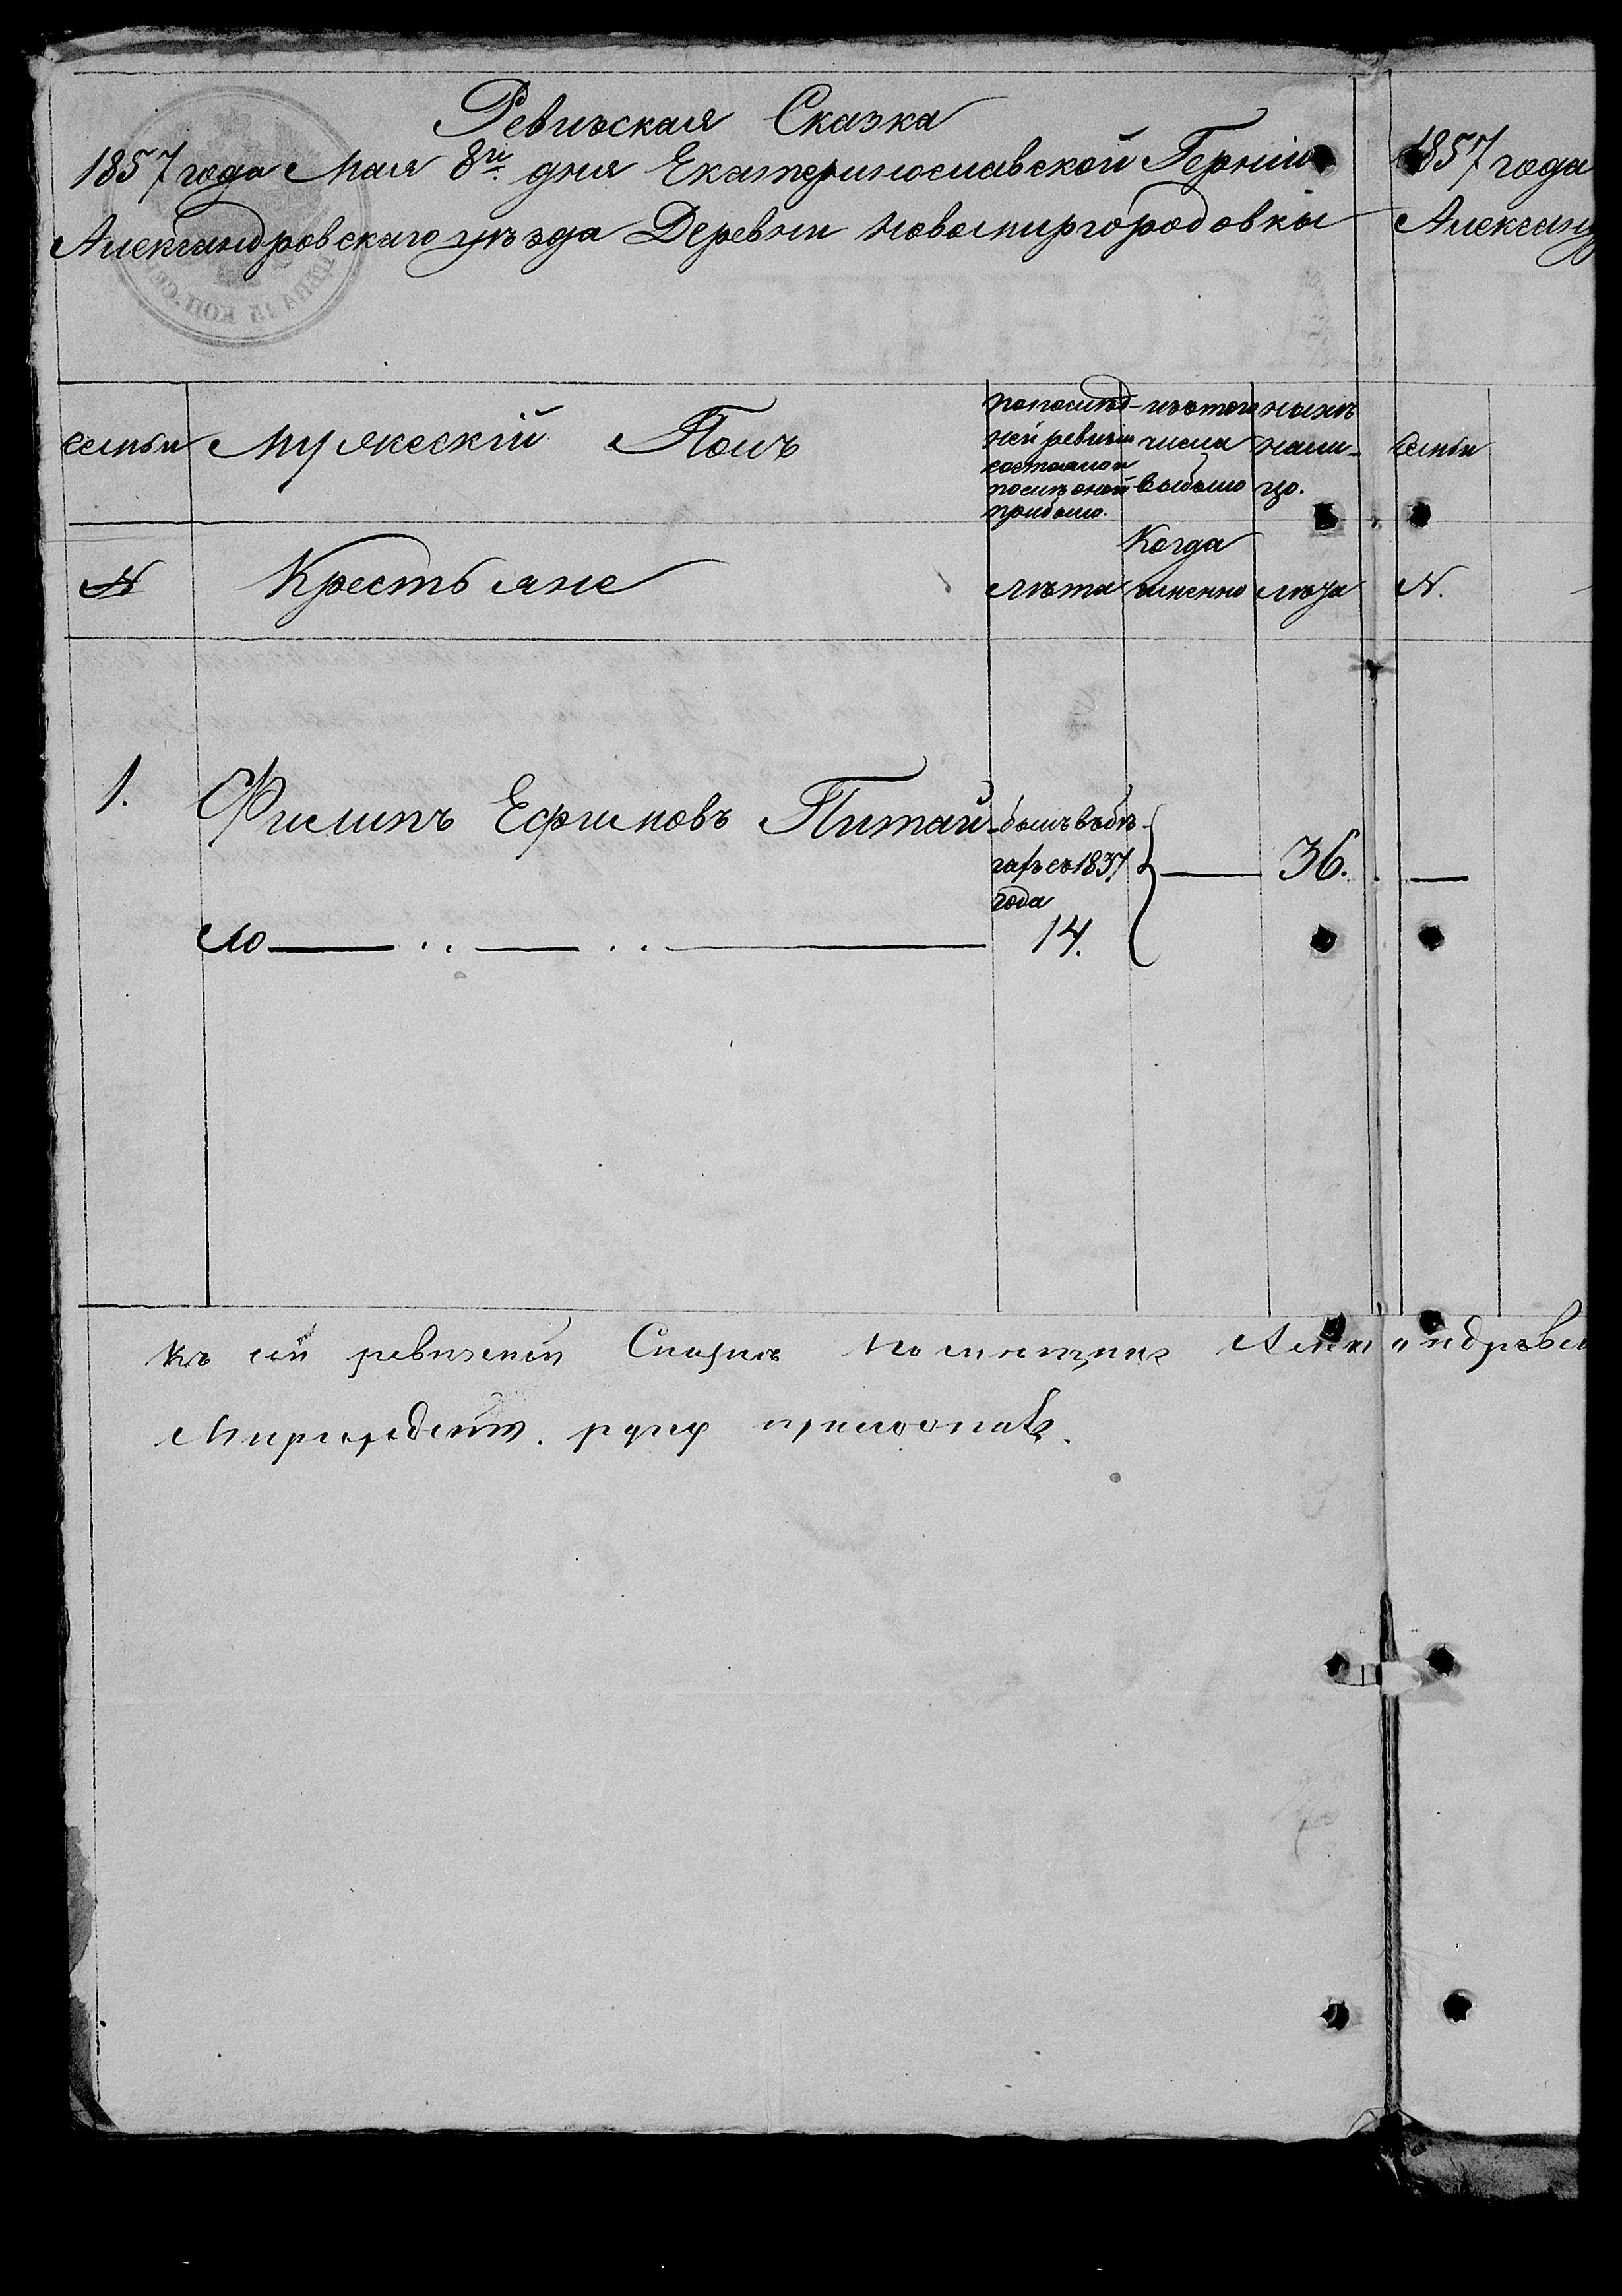 Ревизская Сказка
1857 года Мая 8го дня Екатеринославской Гернiи
Александровскаго уѣзда Деревни Новомиргородовки
семьи
Мужескiй Полъ
по послѣд-
ней ревизiи
состояло и
послѣ оной
прибыло.
изъ того
числа
выбыло
нынѣ
нали-
цо.
N
Крестьяне
лѣта
Когда
именно
лѣта
1.
Филипъ Ефимовъ Питай-
ло
былъ въ бѣ-
гахъ съ 1837
года
14.
36.
Къ сей ревизской Сказкѣ помещикъ Александровск
Миргородскiй. руку приложилъ.
1857 года
Александ
семьи
N.